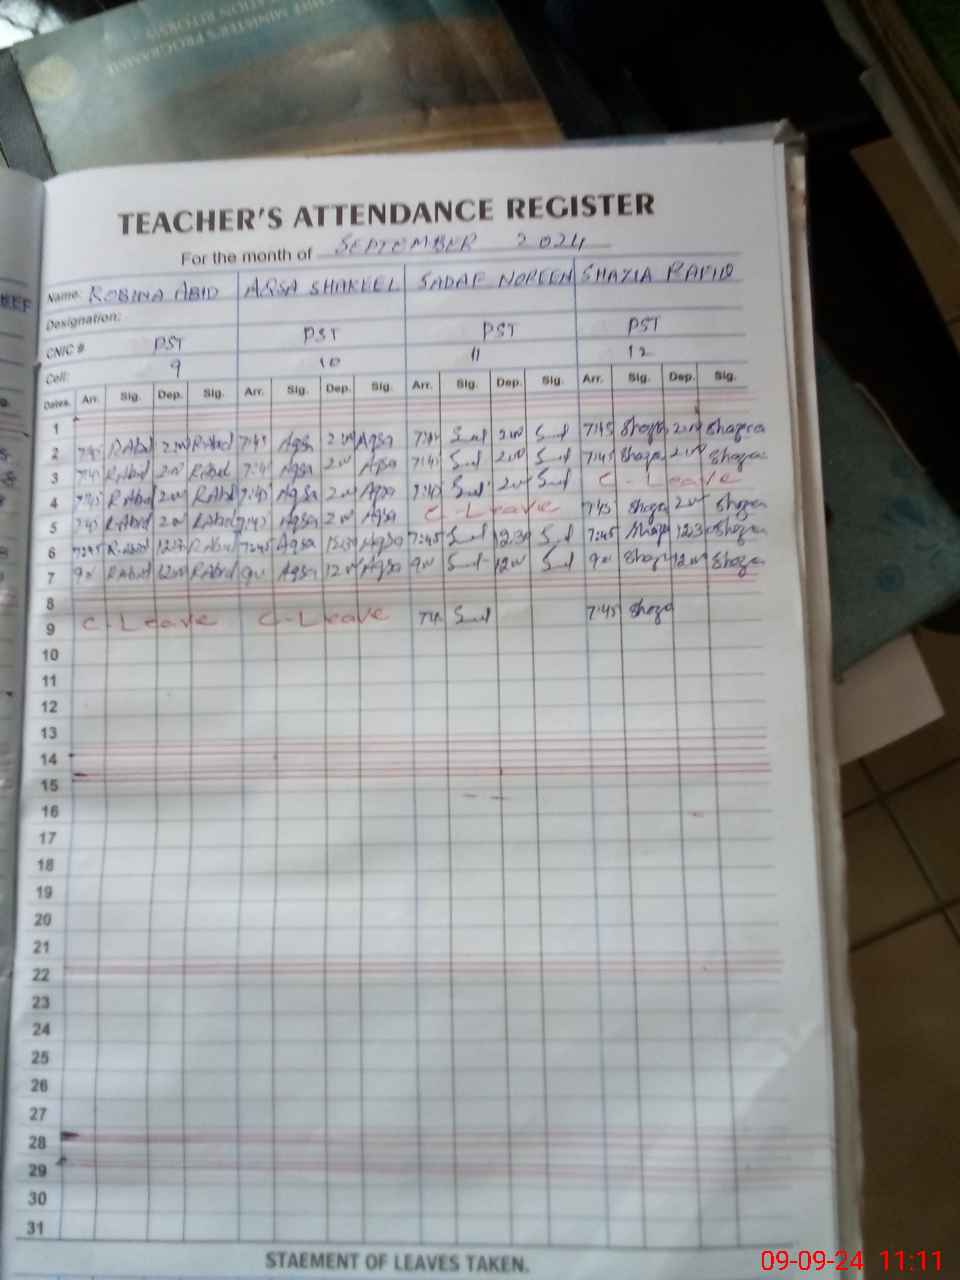 CHIEF MINISTER'S PROGRAMME
TEACHER'S ATTENDANCE REGISTER
For the month of SEPTEMBER 2024
Name: ROBINA ABID AQSA SHAKEEL SADAF NOREEN SHAZIA RAFIQ
Designation:
CNIC # PST PST PST PST
Cell: 9 10 11 12
Dates. Arr. Sig. Dep. Sig. Arr. Sig. Dep. Sig. Arr. Sig. Dep. Sig. Arr. Sig. Dep. Sig.
1
2 7:45 R.Abid 200 R.Abid 7:45 Aqsa 200 Aqsa 7:45 200 7:45 Shazia 200 Shazia
3 7:45 R.Abid 200 R.Abid 7:45 Aqsa 200 Aqsa 7:45 200 7:45 Shazia 200 Shazia
4 7:45 R.Abid 200 R.Abid 7:45 Aqsa 200 Aqsa 7:45 200 C-Leave
5 7:45 R.Abid 200 R.Abid 7:45 Aqsa 200 Aqsa C-Leave 7:45 Shazia 200 Shazia
6 7:45 R.Abid 12:30 R.Abid 7:45 Aqsa 12:30 Aqsa 7:45 12:30 7:45 Shazia 12:30 Shazia
7 900 R.Abid 1200 R.Abid 900 Aqsa 1200 Aqsa 900 1200 900 Shazia 1200 Shazia
8
9 C-Leave C-Leave 7:45 Shazia
10
11
12
13
14
15
16
17
18
19
20
21
22
23
24
25
26
27
28
29
30
31
STAEMENT OF LEAVES TAKEN.
09-09-24 11:11